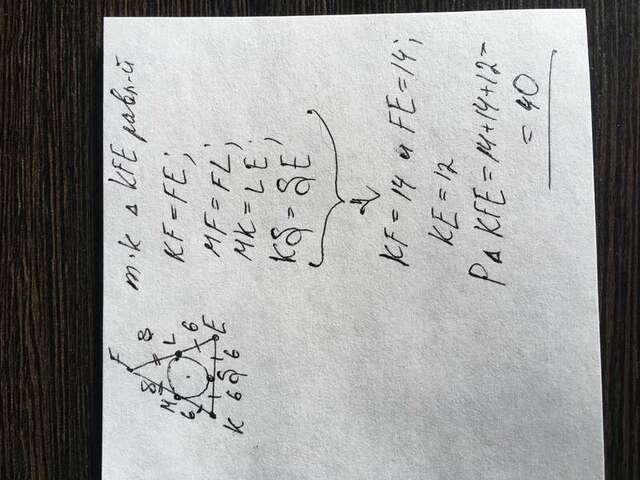 F
8 8
M L
6 6
K 6 S 6 E
т.к Δ KFE равн-й
KF = FE;
MF = FL;
MK = LE;
KS = SE;
KF = 14 и FE = 14;
KE = 12
PΔ KFE = 14+14+12=
= 40